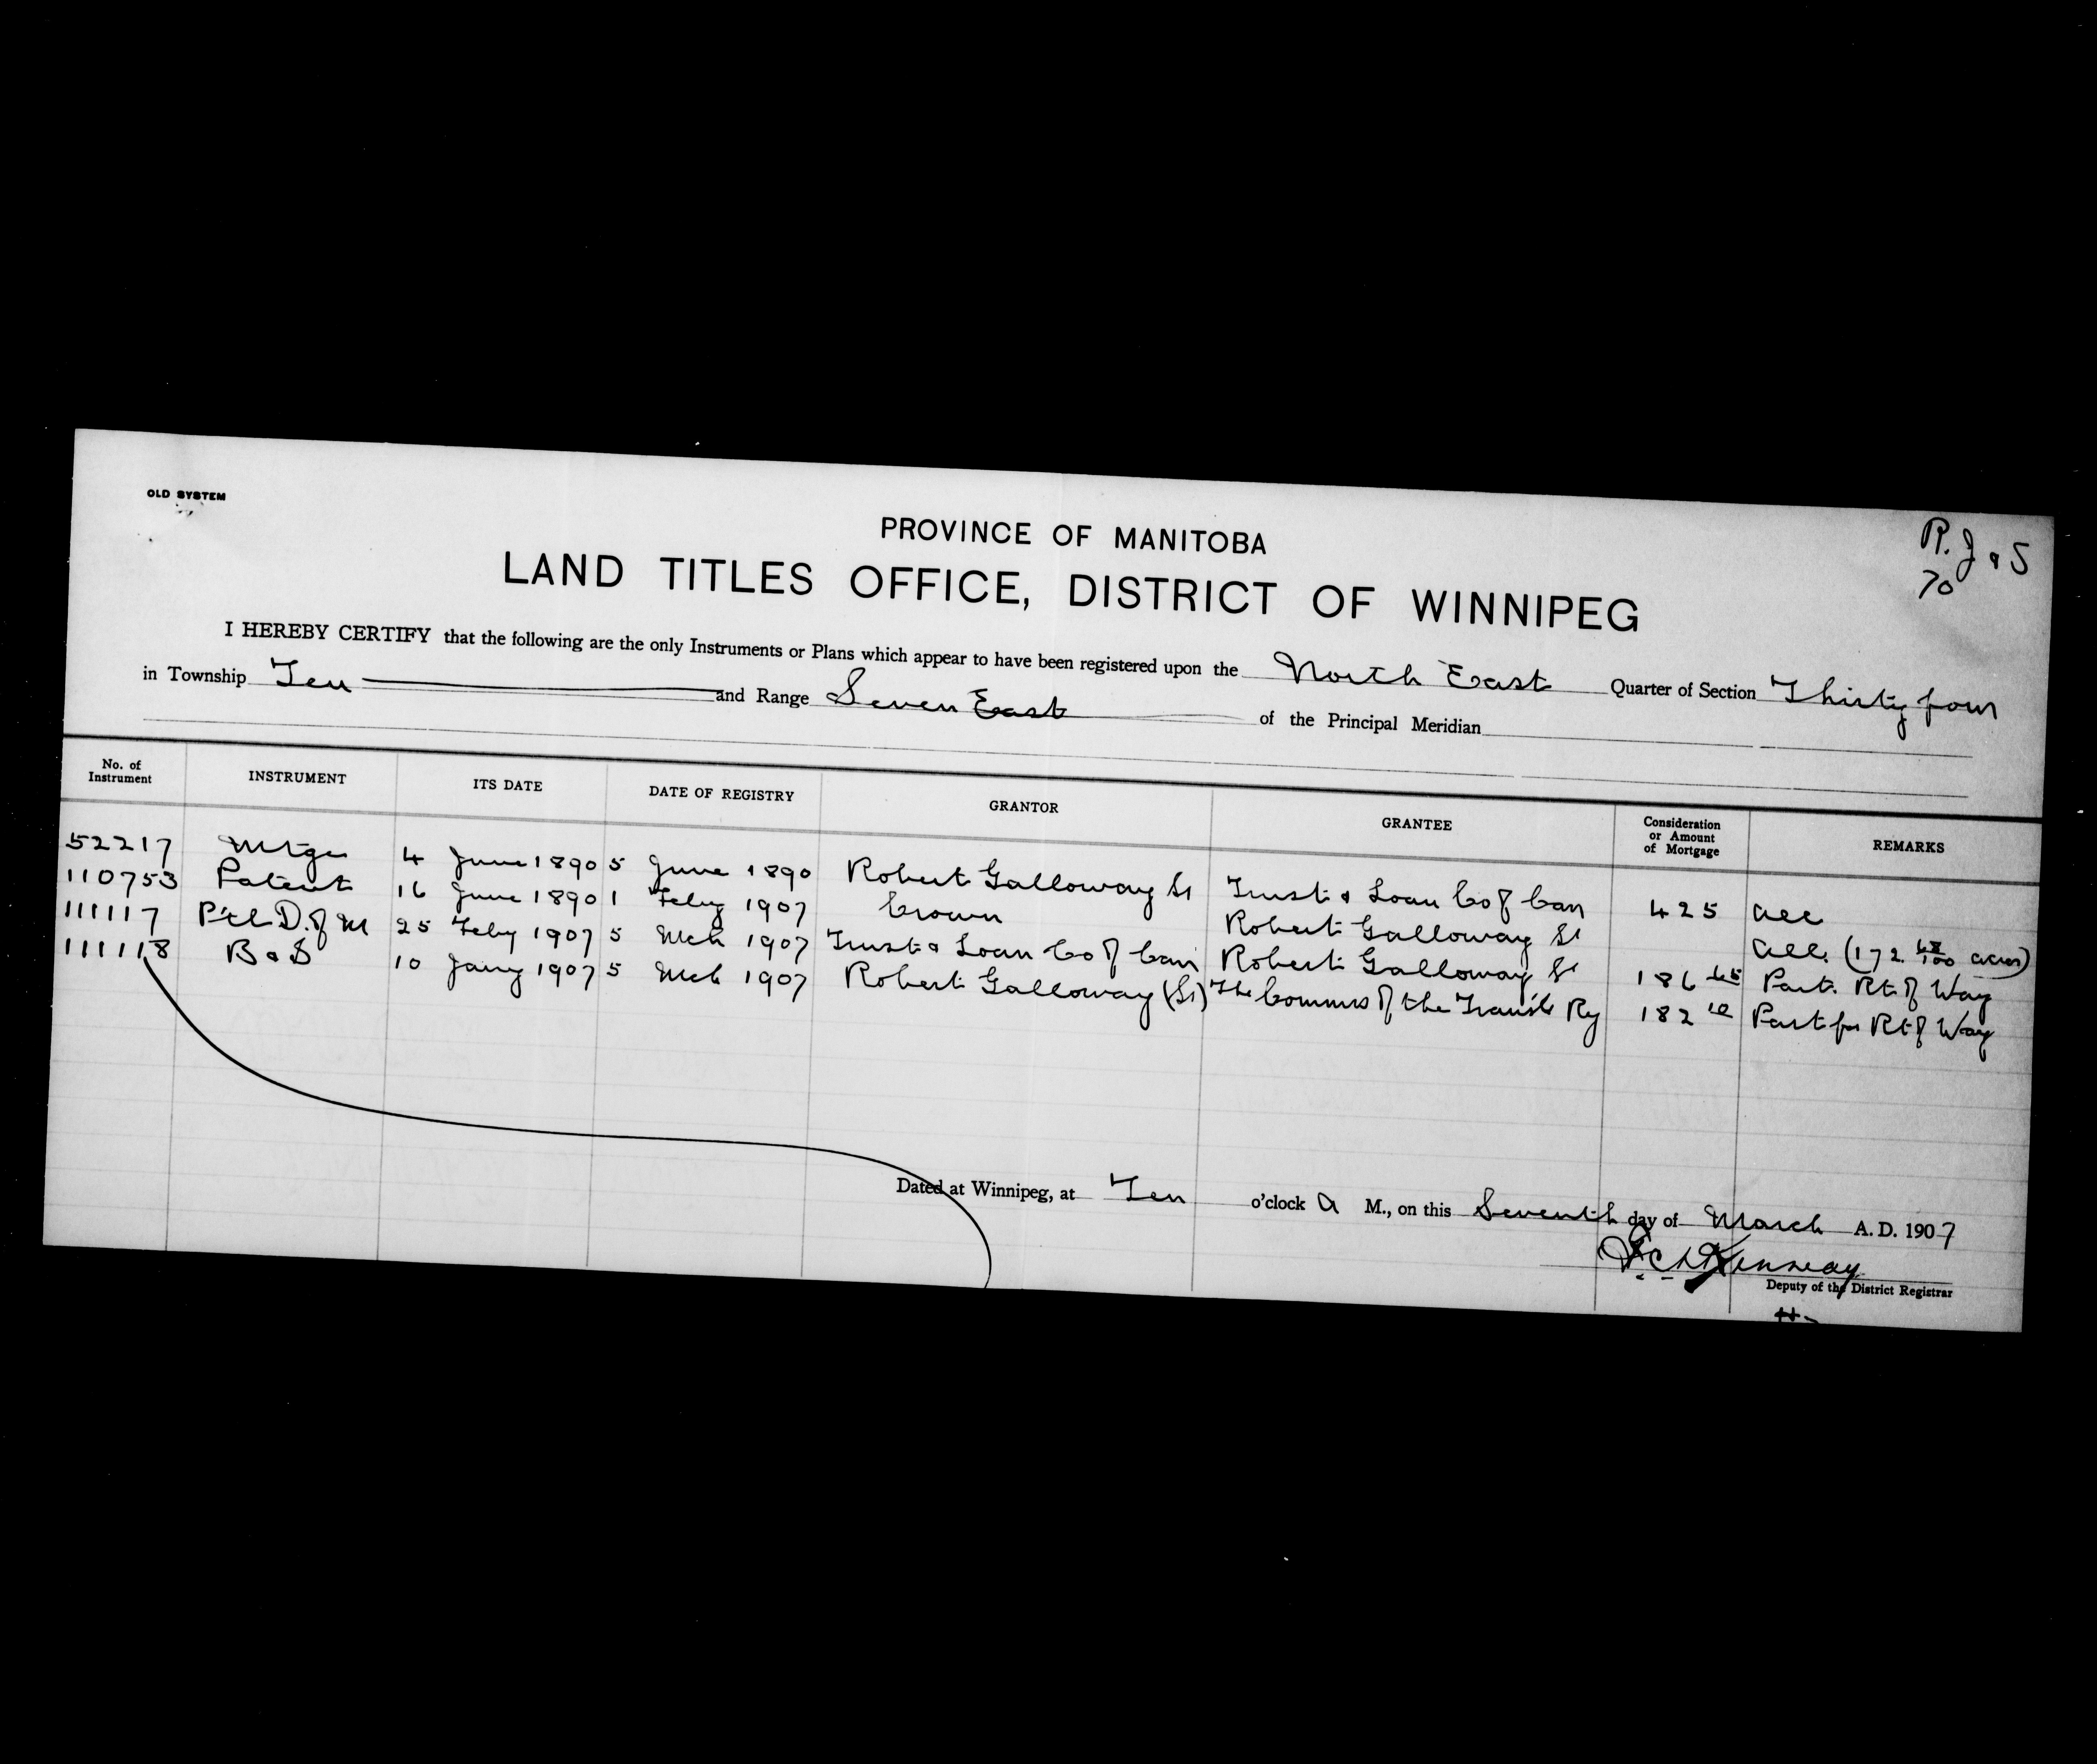 OLD SYSTEM
R. J & S
70
PROVINCE OF MANITOBA
LAND TITLES OFFICE, DISTRICT OF WINNIPEG
I HEREBY CERTIFY that the following are the only Instruments or Plans which appear to have been registered upon the North East Quarter of Section Thirty four
in Township Ten and Range Seven East of the Principal Meridian
No. of Instrument INSTRUMENT ITS DATE DATE OF REGISTRY GRANTOR GRANTEE Consideration or Amount of Mortgage REMARKS
52217 Mtge 4 June 1890 5 June 1890 Robert Galloway Sr Trust & Loan Co of Can 425 all
110753 Patent 16 June 1890 1 Feby 1907 Crown Robert Galloway Sr all. (172. 48/100 acres)
111117 P'tl D. of M 25 Feby 1907 5 Mch 1907 Trust & Loan Co of Can Robert Galloway Sr 186 Part. Rt of Way
111118 B & S 10 Jany 1907 5 Mch 1907 Robert Galloway (Sr) The Commrs of the Trans'l Ry 182 10 Part for Rt of Way
Dated at Winnipeg, at Ten o'clock A M., on this Seventh day of March A. D. 1907
Deputy of the District Registrar